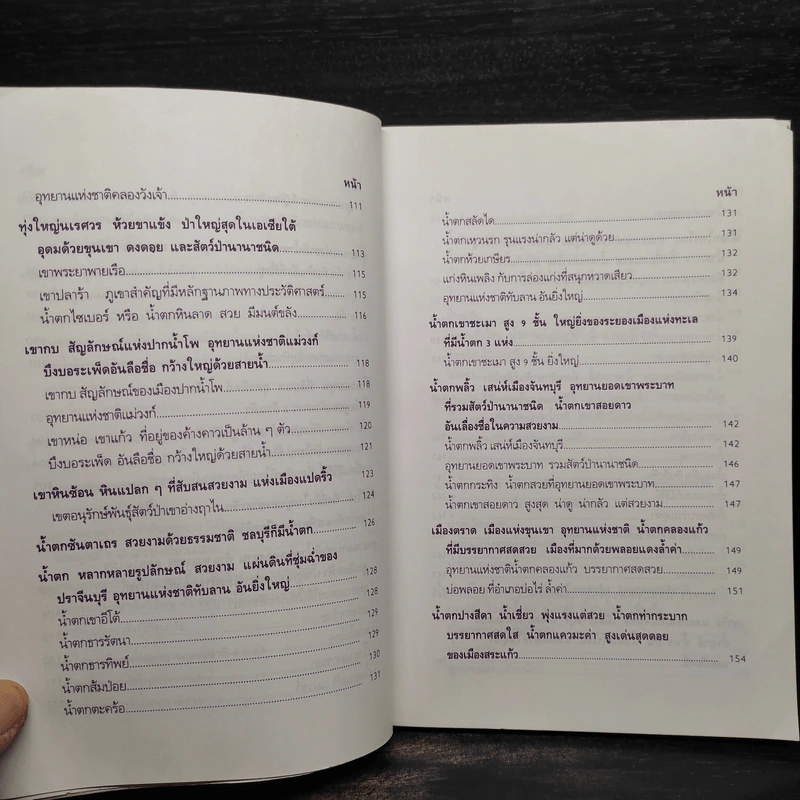 หน้า
อุทยานแห่งชาติคลองวังเจ้า........111
ทุ่งใหญ่นเรศวร ห้วยขาแข้ง ป่าใหญ่สุดในเอเซียใต้
อุดมด้วยขุนเขา ดงดอย และสัตว์ป่านานาชนิด........113
เขาพระยาพายเรือ........115
เขาปลาร้า ภูเขาสำคัญที่มีหลักฐานภาพทางประวัติศาสตร์........115
น้ำตกไซเบอร์ หรือ น้ำตกหินลาด สวย มีมนต์ขลัง........116
เขากบ สัญลักษณ์แห่งปากน้ำโพ อุทยานแห่งชาติแม่วงก์
บึงบอระเพ็ดอันลือชื่อ กว้างใหญ่ด้วยสายน้ำ........118
เขากบ สัญลักษณ์ของเมืองปากน้ำโพ........118
อุทยานแห่งชาติแม่วงก์........119
เขาหน่อ เขาแก้ว ที่อยู่ของค้างคาวเป็นล้าน ๆ ตัว........120
บึงบอระเพ็ด อันลือชื่อ กว้างใหญ่ด้วยสายน้ำ........121
เขาหินซ้อน หินแปลก ๆ ที่สับสนสวยงาม แห่งเมืองแปดริ้ว 123
เขตอนุรักษ์พันธุ์สัตว์ป่าเขาอ่างฤาไน........124
น้ำตกชันตาเถร สวยงามด้วยธรรมชาติ ชลบุรีก็มีน้ำตก........126
น้ำตก หลากหลายรูปลักษณ์ สวยงาม แผ่นดินที่ชุ่มฉ่ำของ
ปราจีนบุรี อุทยานแห่งชาติทับลาน อันยิ่งใหญ่........128
น้ำตกเขาอีโต้........128
น้ำตกธารรัตนา........129
น้ำตกธารทิพย์........129
น้ำตกส้มป่อย........130
น้ำตกตะคร้อ........131
หน้า
น้ำตกสลัดได........131
น้ำตกเหวนรก รุนแรงน่ากลัว แต่น่าดูด้วย........131
น้ำตกห้วยเกษียร........132
แก่งหินเพลิง กับการล่องแก่งที่สนุกหวาดเสียว........132
อุทยานแห่งชาติทับลาน อันยิ่งใหญ่........134
น้ำตกเขาชะเมา สูง 9 ชั้น ใหญ่ยิ่งของระยองเมืองแห่งทะเล
ที่มีน้ำตก 3 แห่ง........139
น้ำตกเขาชะเมา สูง 9 ชั้น ยิ่งใหญ่........140
น้ำตกพลิ้ว เสน่ห์เมืองจันทบุรี อุทยานยอดเขาพระบาท
ที่รวมสัตว์ป่านานาชนิด น้ำตกเขาสอยดาว
อันเลื่องชื่อในความสวยงาม........142
น้ำตกพลิ้ว เสน่ห์เมืองจันทบุรี........142
อุทยานยอดเขาพระบาท รวมสัตว์ป่านานาชนิด........146
น้ำตกกระทิง น้ำตกสวยที่อุทยานยอดเขาพระบาท........147
น้ำตกเขาสอยดาว สูงสุด น่าดู น่ากลัว แต่สวยงาม........147
เมืองตราด เมืองแห่งขุนเขา อุทยานแห่งชาติ น้ำตกคลองแก้ว
ที่มีบรรยากาศสดสวย เมืองที่มากด้วยพลอยแดงล้ำค่า........149
อุทยานแห่งชาติน้ำตกคลองแก้ว บรรยากาศสดสวย........149
บ่อพลอย ที่อำเภอบ่อไร่ ล้ำค่า........151
น้ำตกปางสีดา น้ำเชี่ยว พุ่งแรงแต่สวย น้ำตกท่ากระบาก
บรรยากาศสดใส น้ำตกแควมะค่า สูงเด่นสุดดอย
ของเมืองสระแก้ว........154